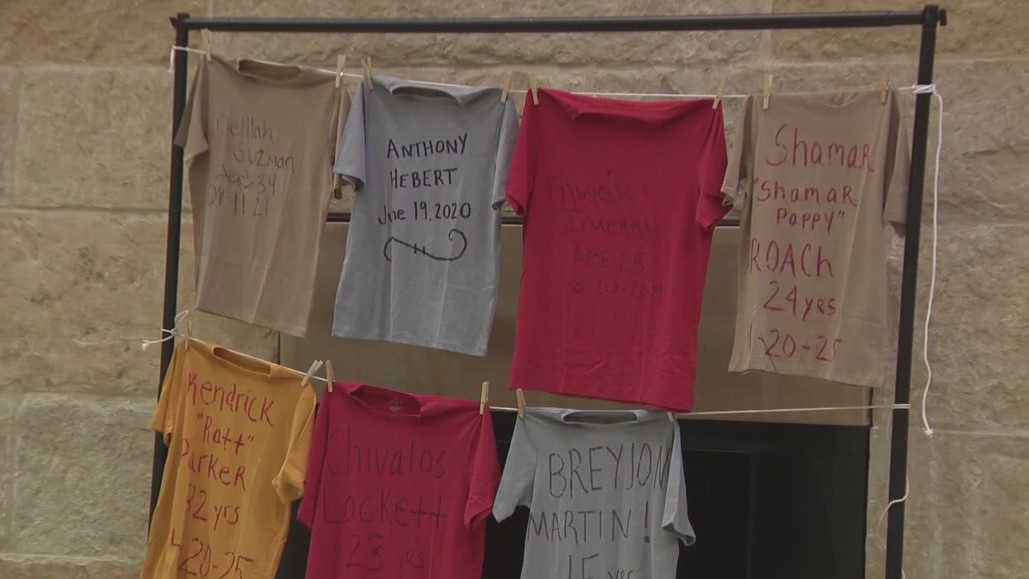 Delilah
Guzman
Age 34
08-11-21
ANTHONY
HEBERT
June 19, 2020
Age 25
Shamar
"Shamar
Pappy"
ROACh
24yrs
20-25
Kendrick
"Ratt"
Parker
32 yrs
4-20-25
Chivalos
Lockett
23 yrs
BREYJON
MARTIN!
15 yrs